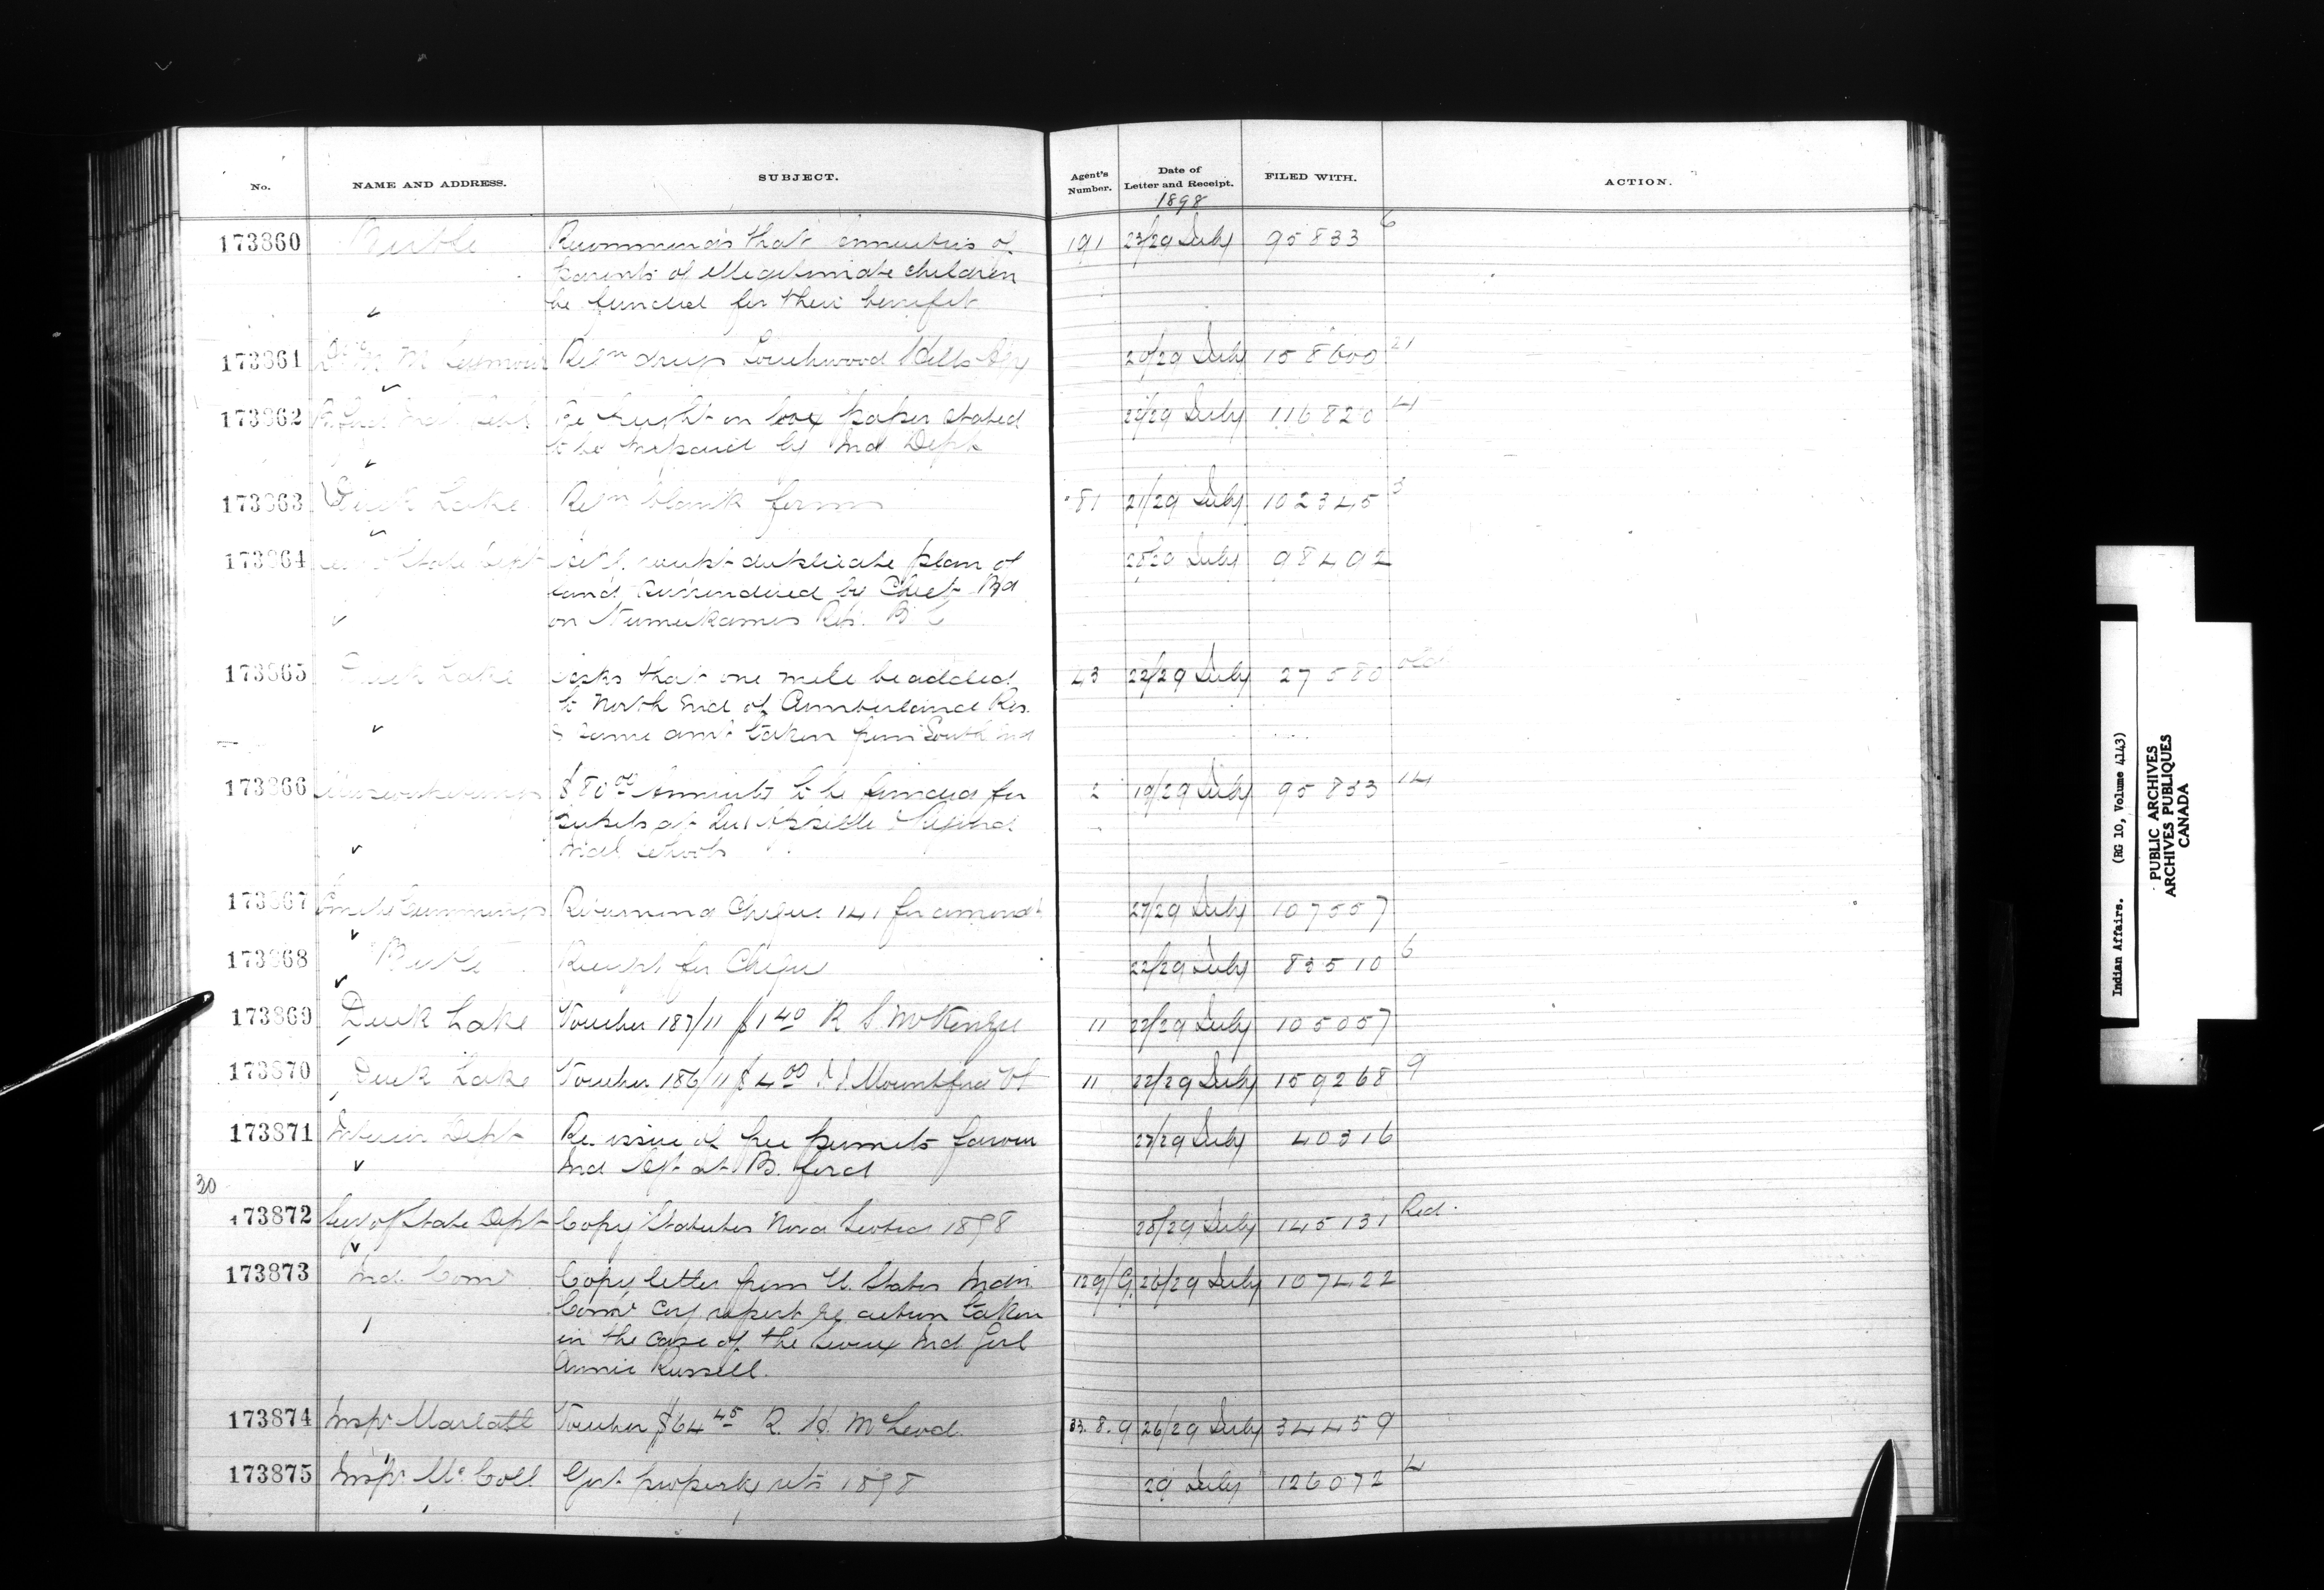 No. NAME AND ADDRESS. SUBJECT. Agent's Number. Date of Letter and Receipt. FILED WITH. ACTION.
1898
173860 Birtle Recommends that annuities of 191 23/29 July 95833 6
parents of illegitimate children
be funded for their benefit
173861 M Seymour Reqn drugs Touchwood Hills Agy 20/29 July 158600 21
173862 Re freight on box paper stated 116820 4
to be prepaid by Ind Dept
173863 Duck Lake Reqn blank forms 81 21/29 July 102345 3
173864 State Dept duplicate plan of 98402
land surrendered by Chief
on Res. B C
173865 Duck Lake Asks that one mile be added 43 22/29 July 27580 old
to North End of Cumberland Res.
& same amt taken from South End
173866 $80.00 Annuity to be funded for 2 19/29 July 95833 14
pupils at Qu'Appelle & Regina
Indl schools
173867 Cummings Returning Cheque 141 for amendt 27/29 July 107557
173868 Birtle Receipt for Cheque 22/29 July 83510 6
173869 Duck Lake Voucher 187/11 $1 40 R S McKenzie 11 22/29 July 105057
173870 Duck Lake Voucher 186/11 $4 00 Mountford 11 22/29 July 159268 9
173871 Interior Dept Re issue of free permits 27/29 July 40316
Ind at B. ford
30
173872 Secy of State Dept Copy Statutes Nova Scotia 1898 28/29 July 145131 Red.
173873 Ind. Comr Copy letter from U. States Indn 129/G 26/29 July 107422
Comr report re action taken
in the case of the Sioux Ind Girl
Annie Russell.
173874 Inspr Marlatt Voucher $64 45 R. H. McLeod. 33.8.9 26/29 July 34459
173875 Inspr McColl Govt property rets 1898 29 July 126072 4
Indian Affairs. (RG 10, Volume 4143)
PUBLIC ARCHIVES
ARCHIVES PUBLIQUES
CANADA